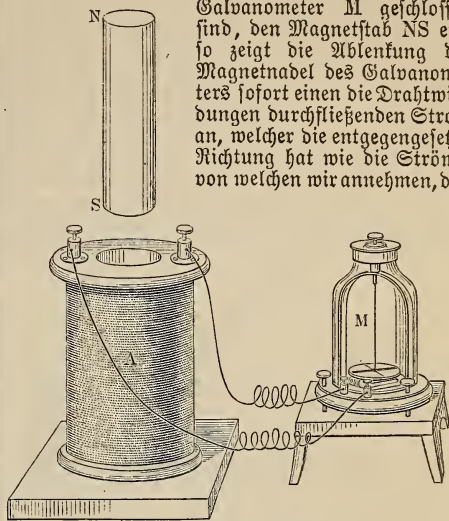 Galvanometer M geschloss
sind, den Magnetstab NS e
so zeigt die Ablenkung d
Magnetnadel des Galvanom
ters sofort einen die Drahtwi
dungen durchfließenden Stro
an, welcher die entgegengeset
Richtung hat wie die Ström
von welchen wir annehmen, d
N
S
A
M